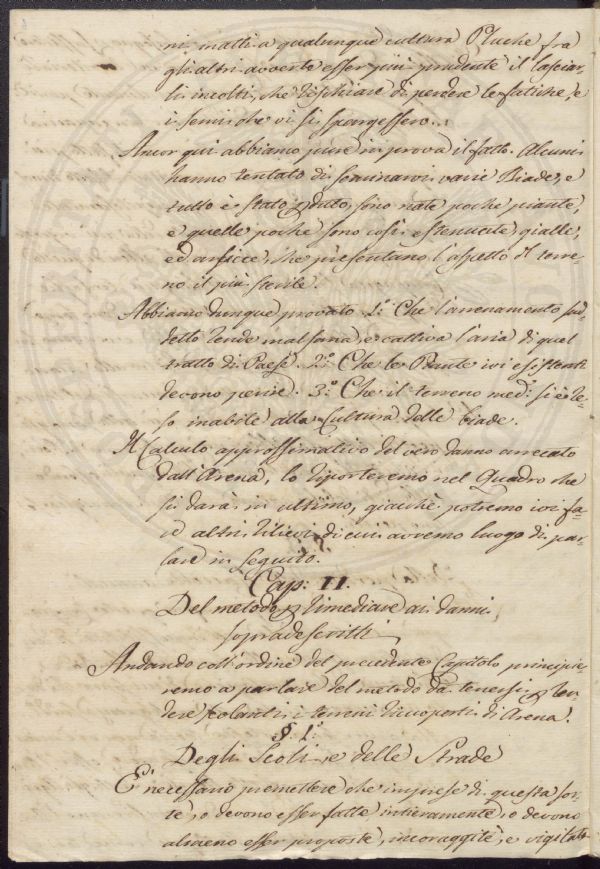 ni inatti a qualunque cultura Pluche fra
gli altri avverte esser più prudente il lasciar-
li incolti, che rischiare di perdere le fatiche, e
i semi che vi si spargessero...
Ancor qui abbiamo pure in prova il fatto. Alcuni
hanno tentato di seminarvi varie Biade, e
tutto è stato pduto, sono nate poche piante,
e quelle poche sono così estenuate, gialle,
ed arsicce, che presentano l'aspetto d'l terre-
no il più sterile.
Abbiamo dunque provato 1.° Che l'arrenamento sud-
detto rende malsana, e cattiva l'aria di quel
tratto di Paese. 2.° Che le Piante ivi esistenti
devono perire. 3.° Che il terreno med.° si è re-
so inabile alla Cultura delle biade.
Il Calculo approssimativo del vero danno arrecato
dall'Arena, lo riporteremo nel Quadro che
si darà in ultimo, giacchè potremo ivi fa-
re altri rilievi di cui avremo luogo di par-
lare in seguito.
Cap: II.
Del metodo p rimediare ai danni
sopradescritti
Andando coll'ordine del precedente Capitolo principie-
remo a parlare del metodo da tenersi p ren-
dere scolanti i terreni ricoperti di Arena.
§. 1.°
Degli Scoli e delle Strade
E' necessario premettere che imprese di questa sor-
te, o devono esser fatte intieramente, o devono
almeno esser proposte, incoraggite, e vigilate